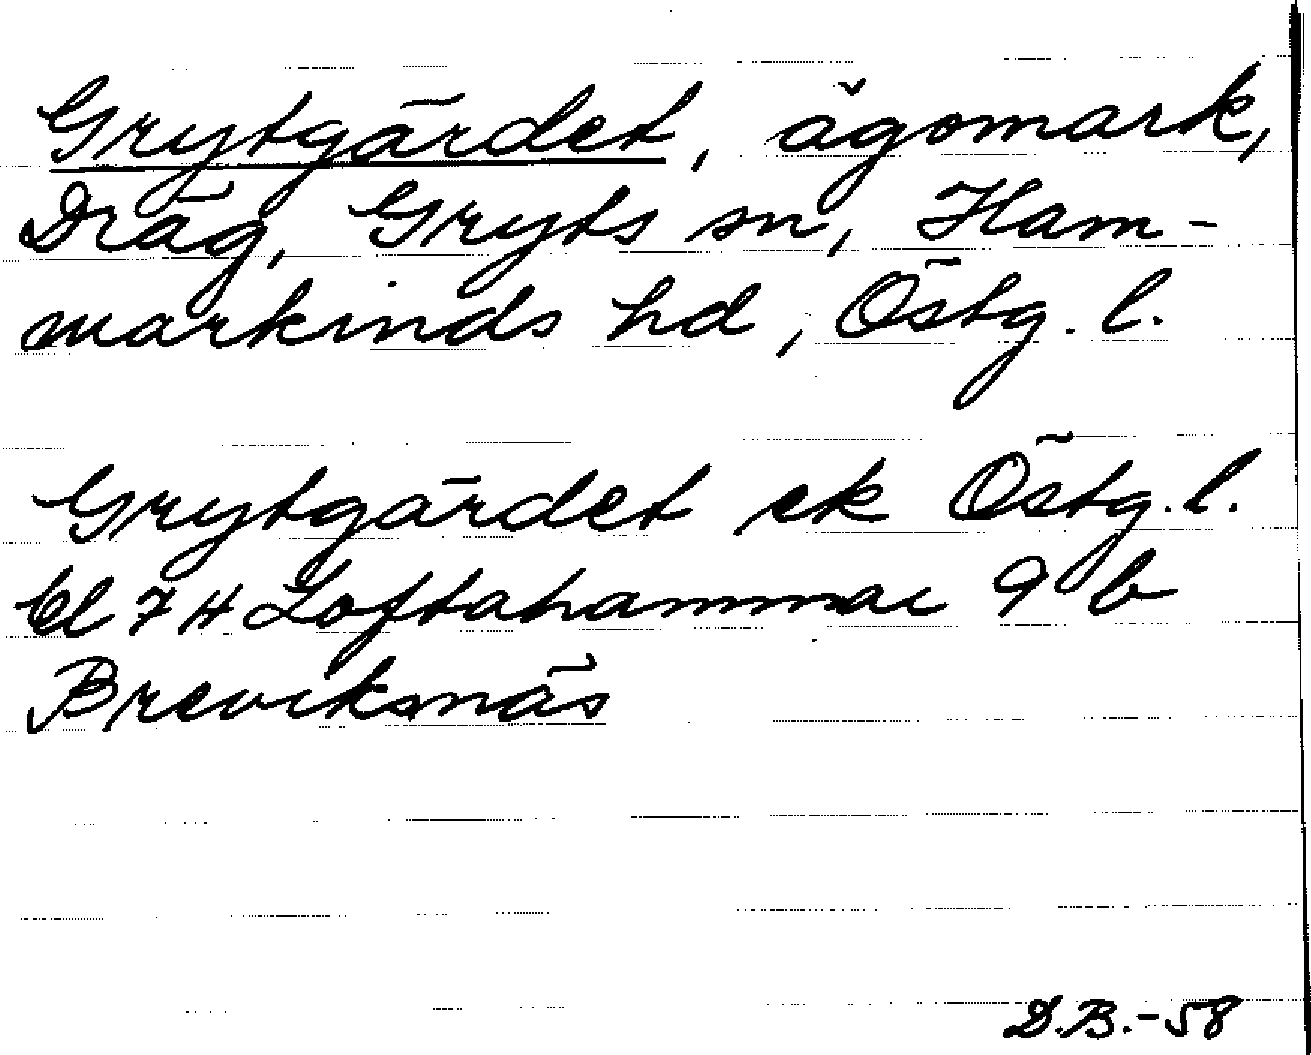 Grytgärdet, ägomark,
Dräg, Gryts sn, Ham-
markinds hd, Östg. l.
Grytgärdet ek Östg. l.
bl 7 H Loftahammar 9 b
Breviksnäs
D.B.-58